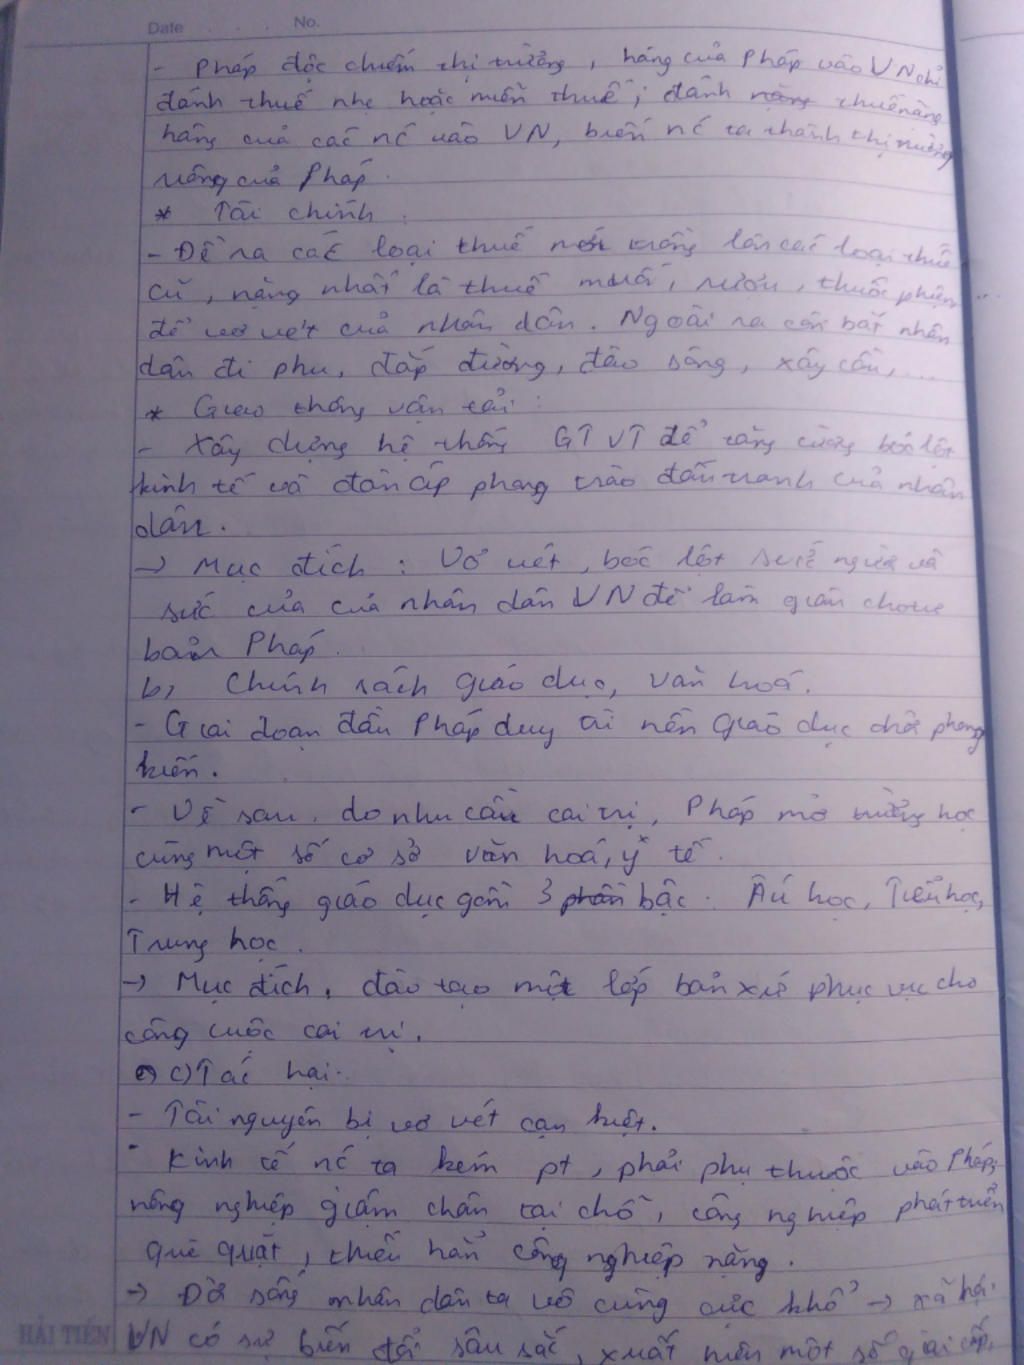 Date . . . No.
- Pháp độc chiếm thị trường, hàng của Pháp vào VN chỉ
đánh thuế nhẹ hoặc miễn thuế; đánh nặng thuế nặng
hàng của các nc vào VN, biến nc ta thành thị trường
riêng của Pháp.
* Tài chính :
- Đề ra các loại thuế mới chồng lên các loại thuế
cũ, nặng nhất là thuế muối, rượu, thuốc phiện
để vơ vét của nhân dân. Ngoài ra còn bắt nhân
dân đi phu, đắp đường, đào sông, xây cầu, ...
* Giao thông vận tải :
- Xây dựng hệ thống GTVT để tăng cường bóc lột
kinh tế và đàn áp phong trào đấu tranh của nhân
dân.
-> Mục đích : Vơ vét, bóc lột sức người và
sức của của nhân dân VN để làm giàu cho tư
bản Pháp.
b, Chính sách giáo dục, văn hoá.
- Giai đoạn đầu Pháp duy trì nền giáo dục thời phong
kiến.
- Về sau, do nhu cầu cai trị, Pháp mở trường học
cùng một số cơ sở văn hoá, y tế.
- Hệ thống giáo dục gồm 3 phần bậc : Ấu học, Tiểu học,
Trung học.
-> Mục đích, đào tạo một lớp bản xứ phục vụ cho
công cuộc cai trị.
c) Tác hại.
- Tài nguyên bị vơ vét cạn kiệt.
- Kinh tế nc ta kém pt, phải phụ thuộc vào Pháp;
nông nghiệp giậm chân tại chỗ, công nghiệp phát triển
què quặt, thiếu hẳn công nghiệp nặng.
-> Đời sống nhân dân ta vô cùng cực khổ -> xã hội
VN có sự biến đổi sâu sắc, xuất hiện một số giai cấp,
HẢI TIẾN